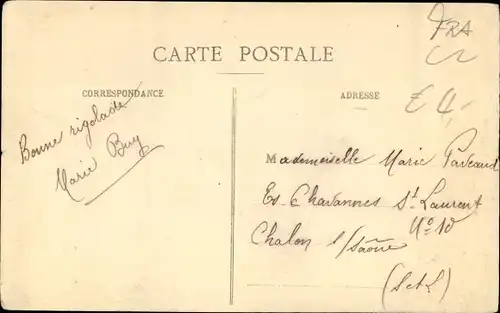 FRA
CARTE POSTALE
CORRESPONDANCE
ADRESSE
£ 4.-
Bonne rigolade
Marie Buy
Mademoiselle Marie Paveaud
Es-Chavannes St Laurent
No 10
Chalon s/Saône
(S et L)